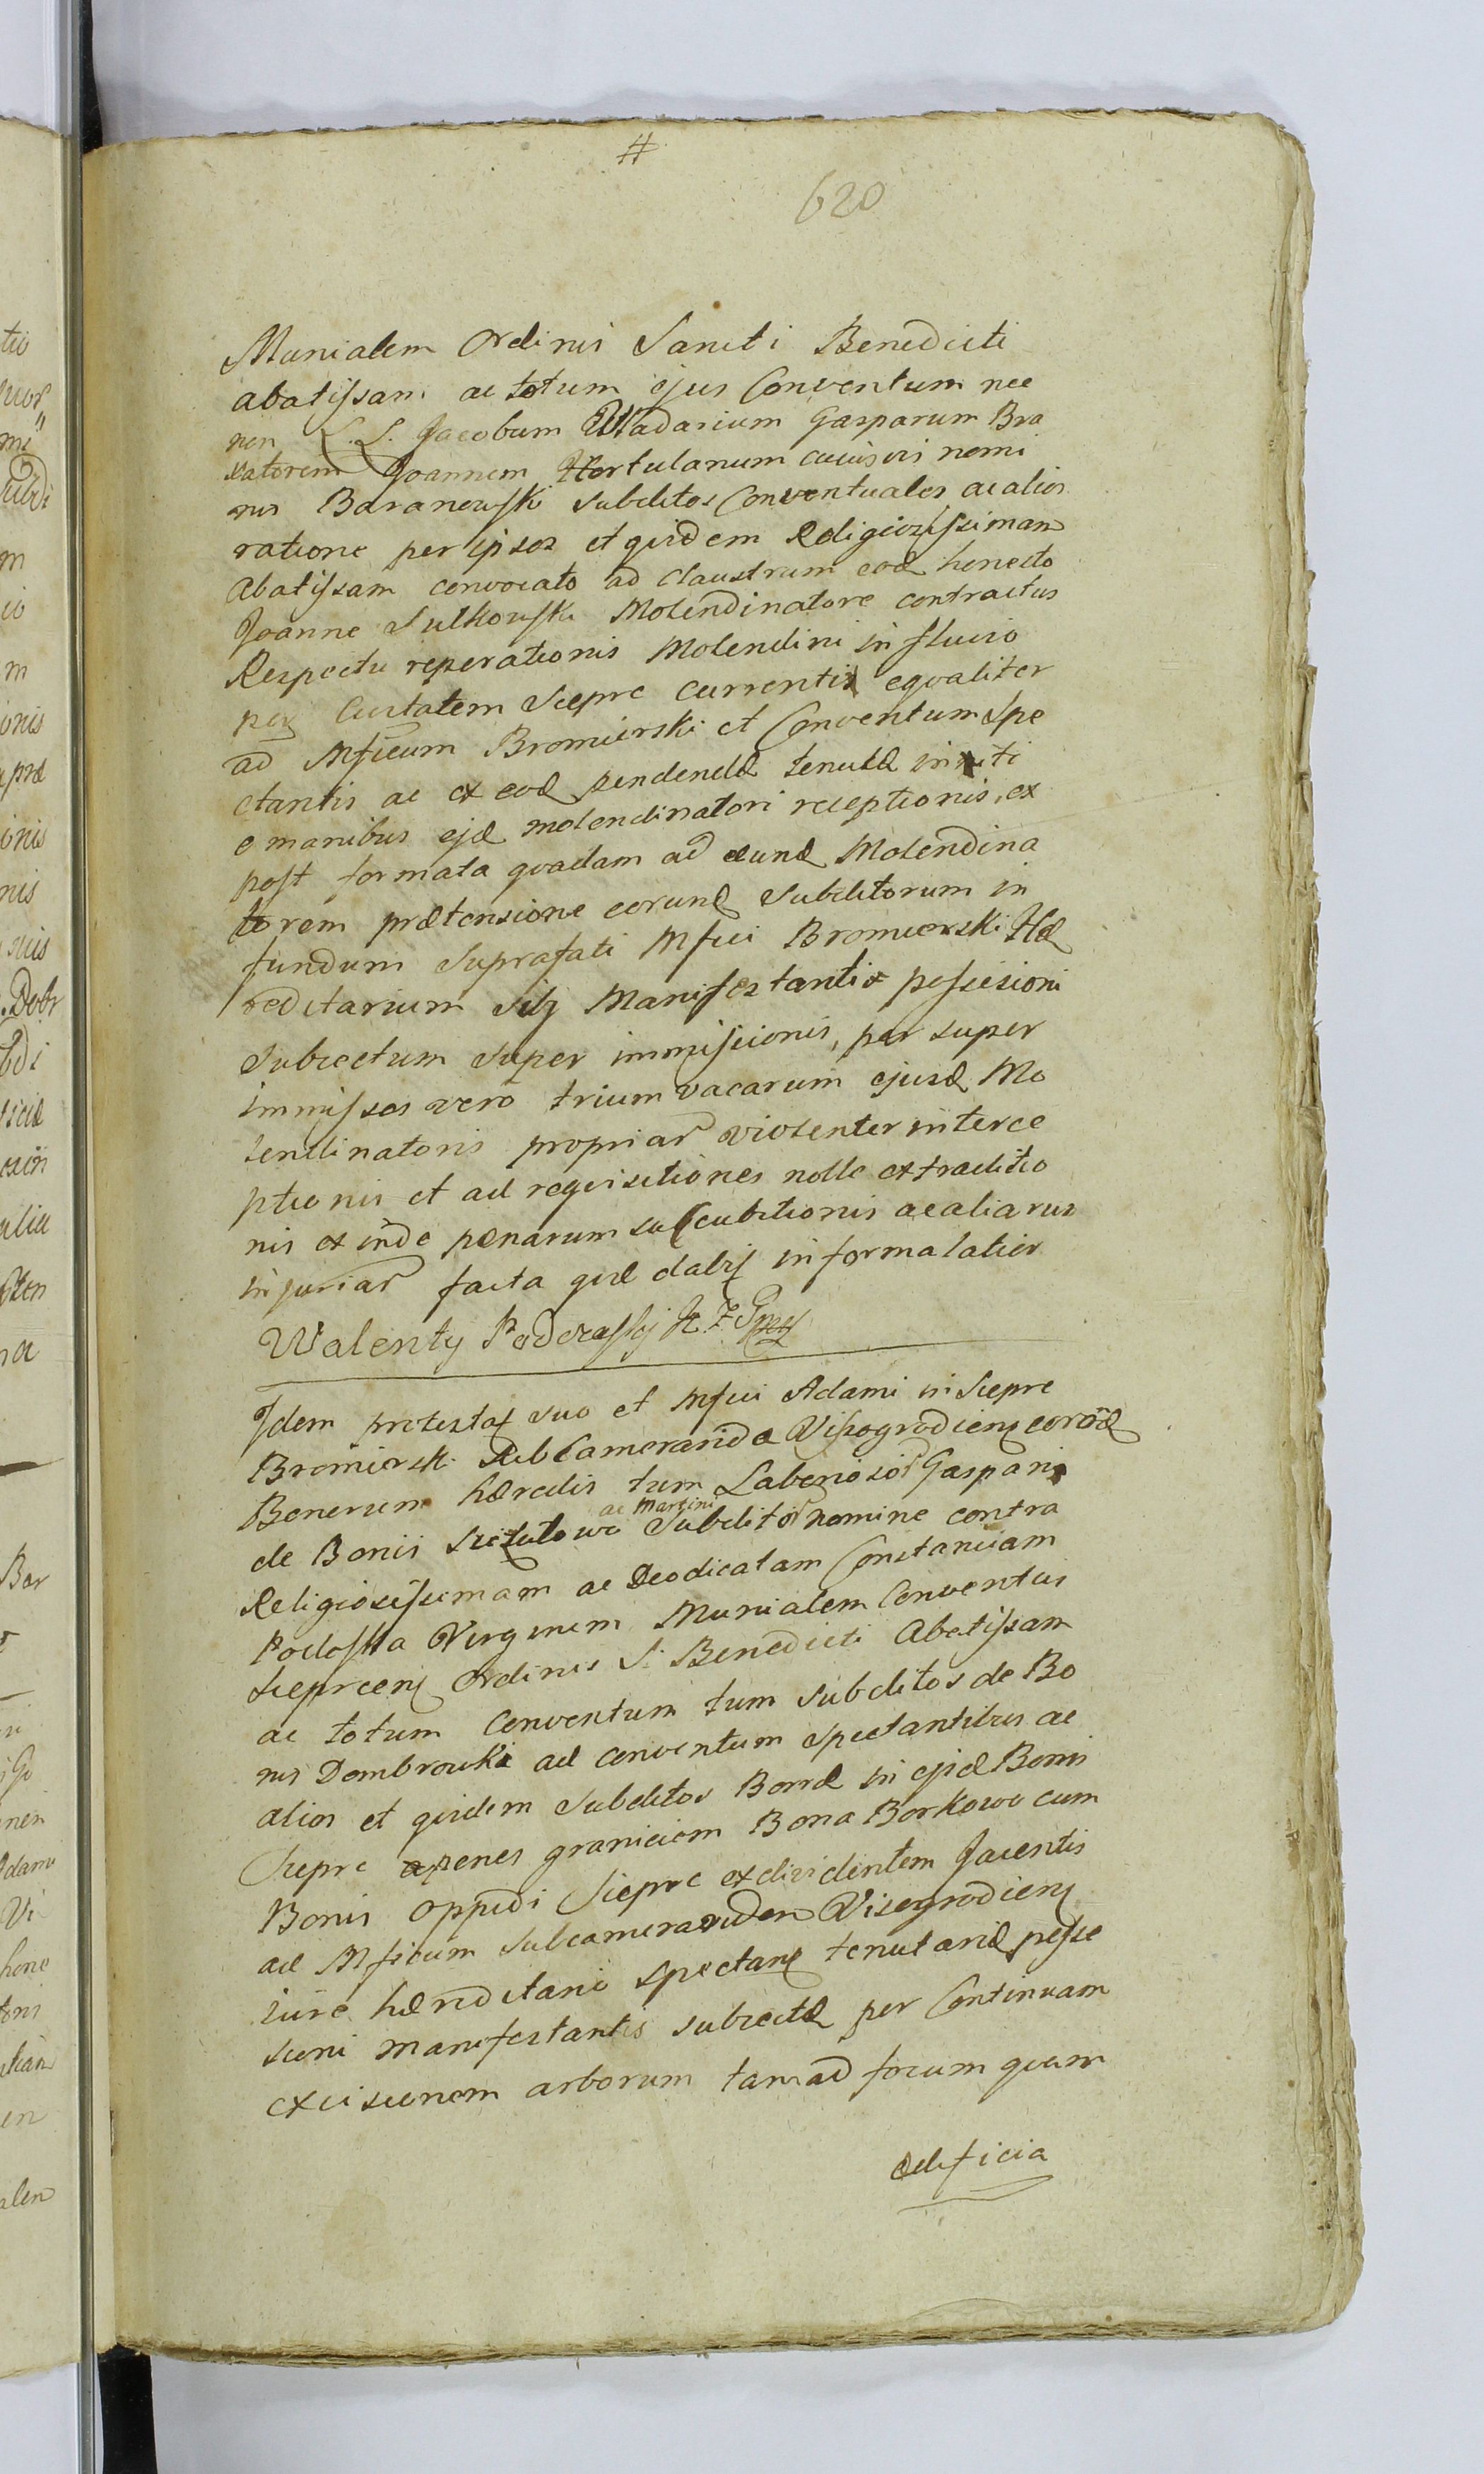 #
620
Monialem Ordinis Sancti Benedicti
abatissam ac totum ejus Conventum nec
non L. L. Jacobum Wladarium Gasparum Bra
xatorem Joannem Hortulanum cuiusvis nomi
nis Baranowski subditos Conventuales ac alios
ratione per ipsos et quidem Religiozissimam
Abatissam convocato ad Claustrum eod honesto
Joanne Sulkowski Molendinatore contractus
Respectu reperationis Molendini in fluvio
per Civitatem Sieprc currentis eqvaliter
ad Mficum Bromierski et Conventum Spe
ctantis ac ex eod pendendæ tenutæ initi
e manibus ejd molendinatori receptionis, ex
post formata qvadam ad eund Molendina
torem prætensione eorund Subditorum in
fundum suprafati Mfici Bromierski Hæ
reditarium Manifestantis possesioni
Subiectum super immissionis, per super
immissos vero trium vacarum ejusd Mo
lendinatoris propriar violenter interce
ptionis et ad reqvisitiones nolle extraditio
nis ex inde pænarum succubitionis ac aliarum
injuriar facta qvæ dabit in forma latior
Walenty Podczaski
Idem protestat suo et Mfici Adami in Sieprc
Bromierski SubCameraridæ Vissogrodiens eorud
Bonorum hæredis tum Laboriosor Gaspari
ac Martini
de Bonis Subditor nomine contra
Religiosissimam ac Deodicatam Constanciam
Podoska Virginem Monialem Conventus
Sieprcens Ordinis S. Benedicti Abatissam
ac totum Conventum tum Subditos de Bo
nis Dombrowki ad conventum spectantibus ac
alios et qvidem Subditos in ejsd Bonis
Sieprc penes graniciem Bona Borkowo cum
Bonis oppidi Sieprc exdividentem Jacentis
ad Mficum subcameraridem Visogrodiens
iure hæreditario spectans tenutariæ posse
sioni manifestantis subiectæ per Continuam
excisionem arborum tam ad focum qvam
ædificia